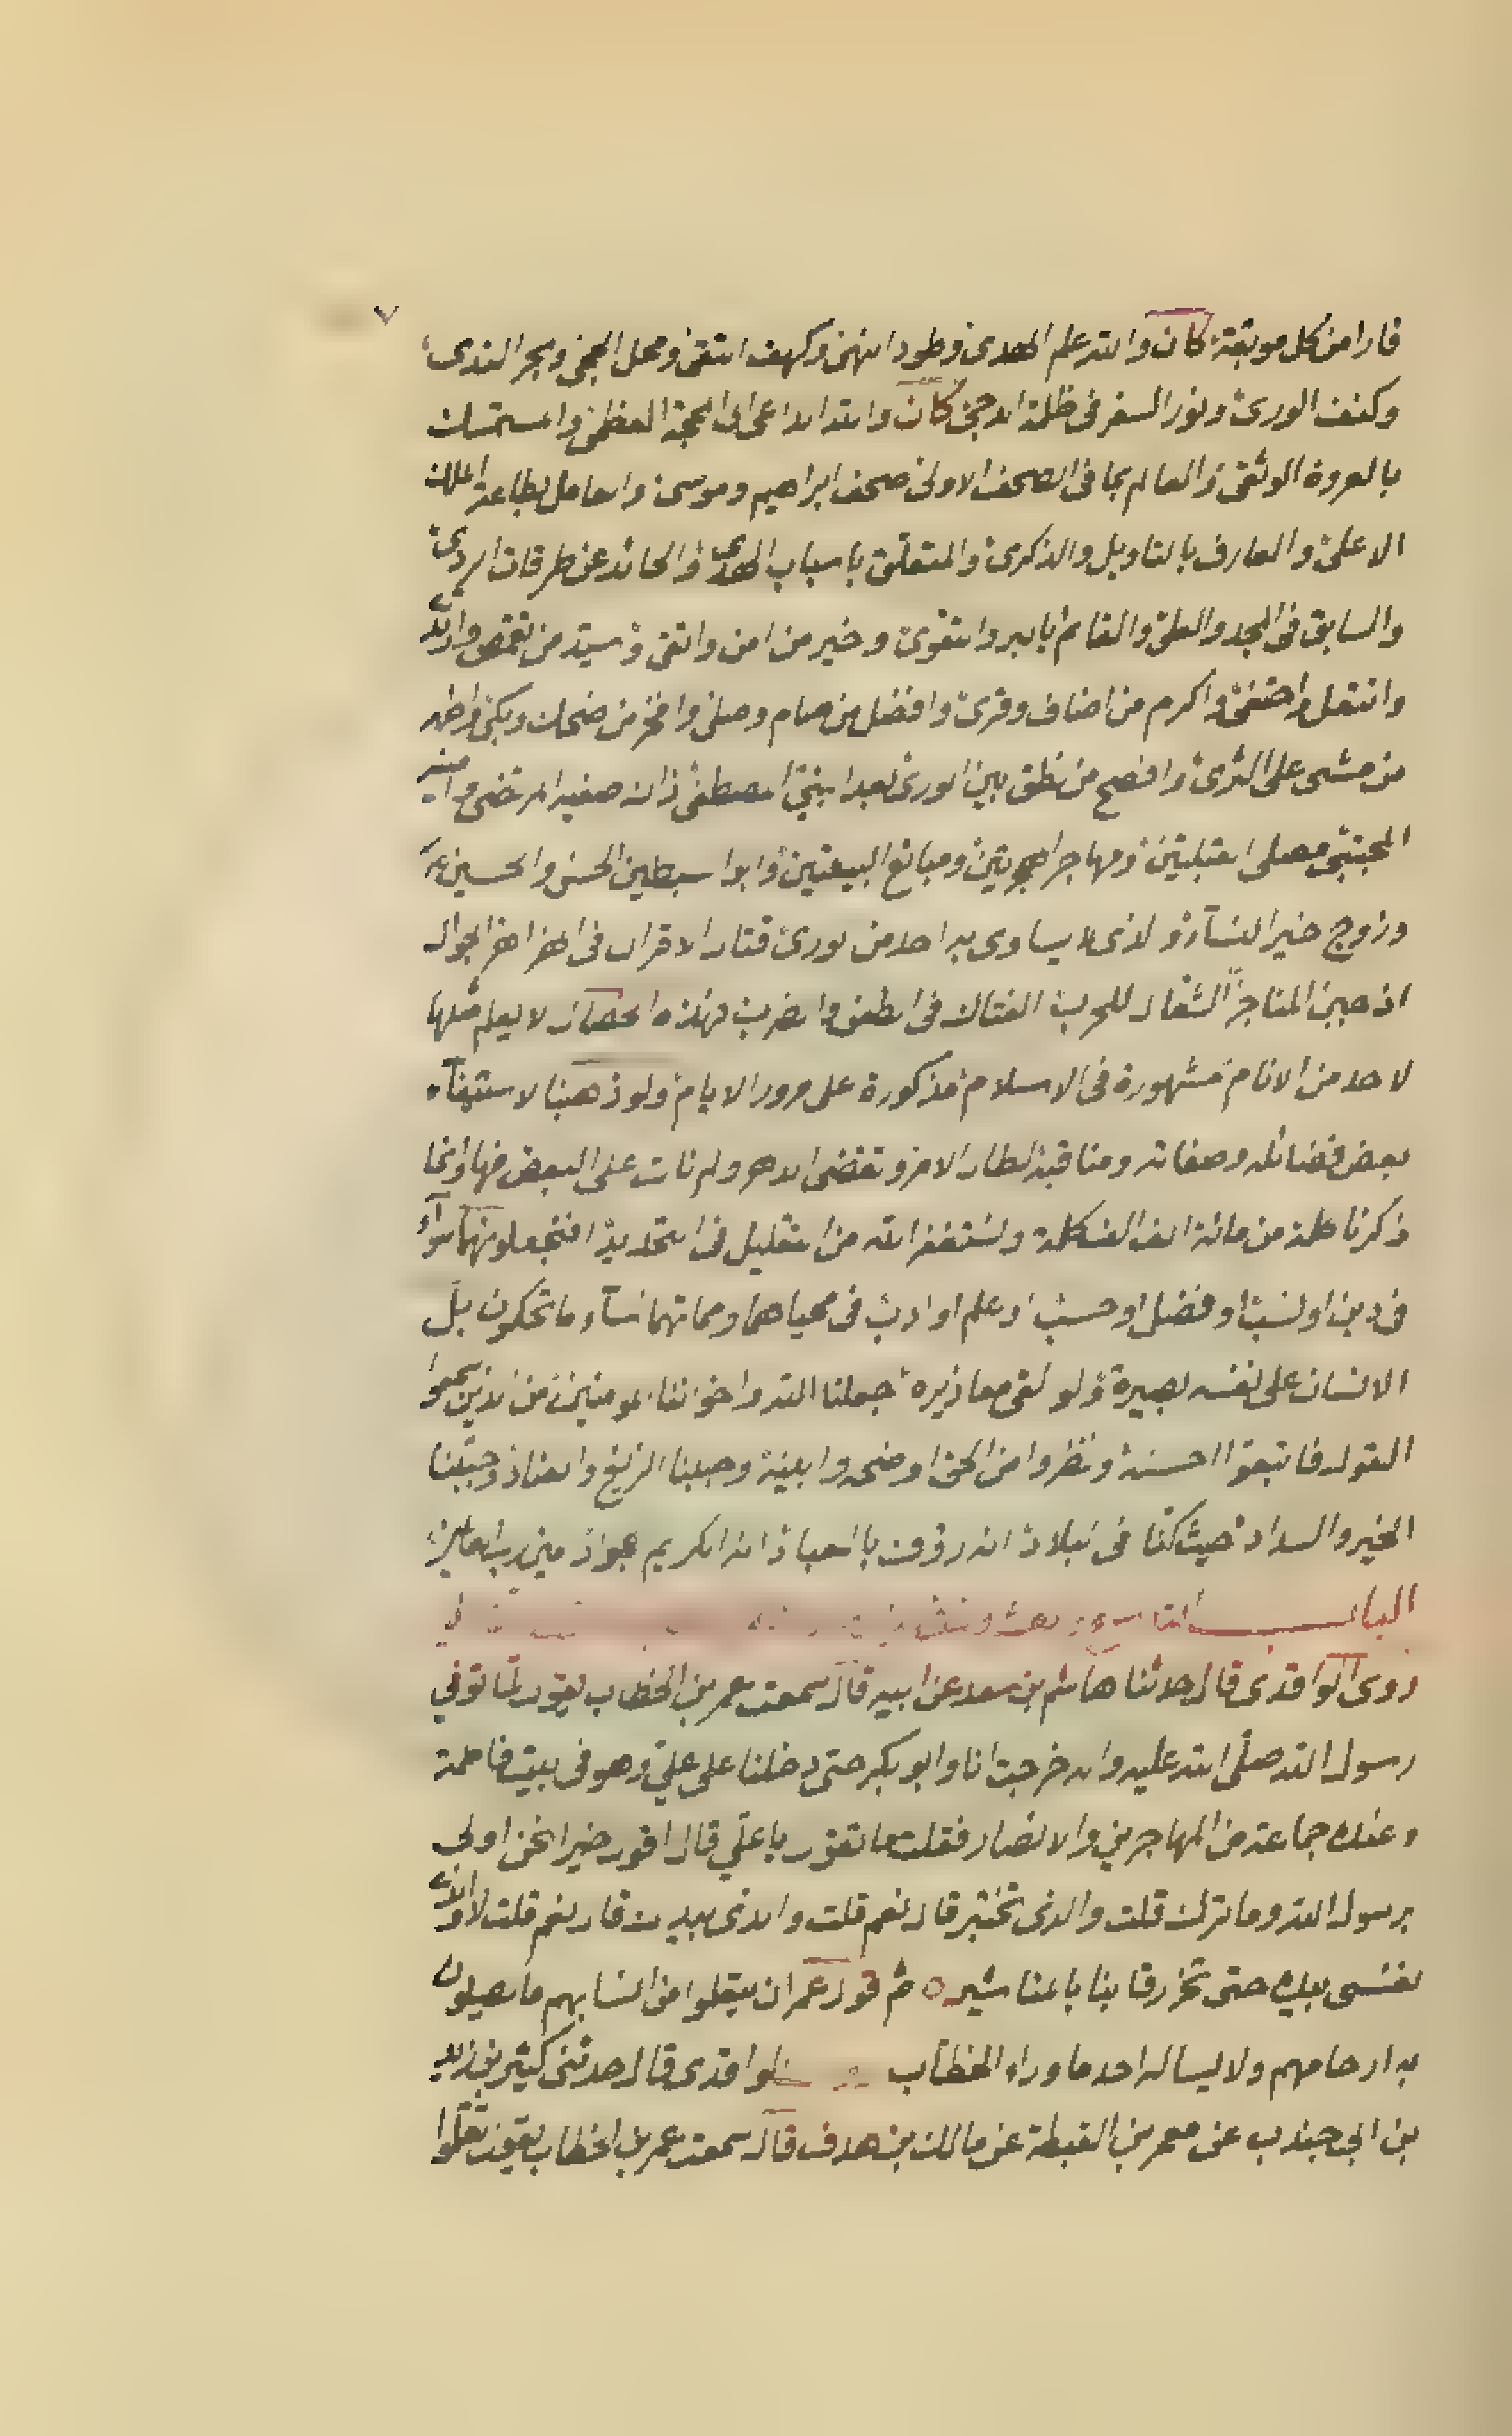 ٧
فارا من كل موبقة كان والله علم الهدى وطود النهى وكهف التقى ومحل الحجى وبحر الندى
وكنف الورى ونور السفر فى ظلمة الدجى كان والله الداعى الى المحجة العظمى والمستمسك
بالعروة الوثقى والعالم بما فى الصحف الاولى صحف ابراهيم وموسى والعامل بطاعة الملك
الاعلى والعارف بالتاويل والذكرى والمتعلق باسباب الهدى والحائد عن طرقات الردى
والسابق فى المجد والعلى والقائم بالبر والتقوى وخير من امن واتقى وسيد من تقمص وارتدى
وانتعل واحتفى واكرم من اضاف وقرى وافضل من صام وصلى وافخر من ضحك وبكى واطهر
من مشى على الثرى وافصح من نطق بين الورى بعد النبى المصطفى ذاك صفيه المرتضى وامينه
المجتبى مصلى القبلتين ومهاجر الهجرتين ومبايع البيعتين وابو السبطين الحسن والحسين
وزوج خير النسآء والذى لا يساوى به احد من الورى قتال الاقران فى الهزاهز الجوال
اذ حين المناجز الشعار للحرب الفتاك فى الطعن والضرب فهذه الخصال لا يعلم مثلها
لاحد من الانام مشهورة فى الاسلام مذكورة على مرور الايام ولو ذهبنا لاستيفآء
بعض فضائله وصفاته ومناقبه لطال الامر وتقضى الدهر ولم نات على البعض منها وانما
ذكرنا كلمة من مائة الف الف كلمة ونستغفر الله من التقليل فى التحديد افتجعلونهما سوآء
فى دين او نسب او فضل او حسب او علم او ادب فى محياهما ومماتهما سآء ما تحكمون بل
الانسان على نفسه بصيرة ولو لقى معاذيره جعلنا الله واخواننا المومنين من الذين سمعوا
القول فاتبعوا احسنه ونظروا من الحق اوضحه وابينه وجبنا الزيغ والعناد وجنبنا
الخير والسداد حيث كنا فى البلاد انه رؤف بالعباد انه الكريم جواد مين رب العالمين
الباب
روى الواقدى قال حدثنا هاشم بن سعد عن ابيه قال سمعت عمر بن الخطاب يقول لما توفي
رسول الله صلى الله عليه واله خرجت انا وابو بكر حتى دخلنا على علي وهو فى بيت فاطمة
وعنده جماعة من المهاجرين والانصار فقلت ما تقول يا علي قال اقول خيرا نحن اولى
برسول الله وما ترك قلت والذى بخيبر قال نعم قلت والذى بيديك قال نعم قلت لا والذى
نفسى بيده حتى تحز رقابنا بالمناشير ثم قول عمر ان يتعلموا من انسابهم ما يصلون
به ارحامهم ولا يساله احد ما وراء الخطاب الواقدى قال حدثنى كثير بن زيد
بن ابى جندب عن معمر بن القبطة عن مالك بن هدف قال سمعت عمر بن الخطاب يقول تعلموا